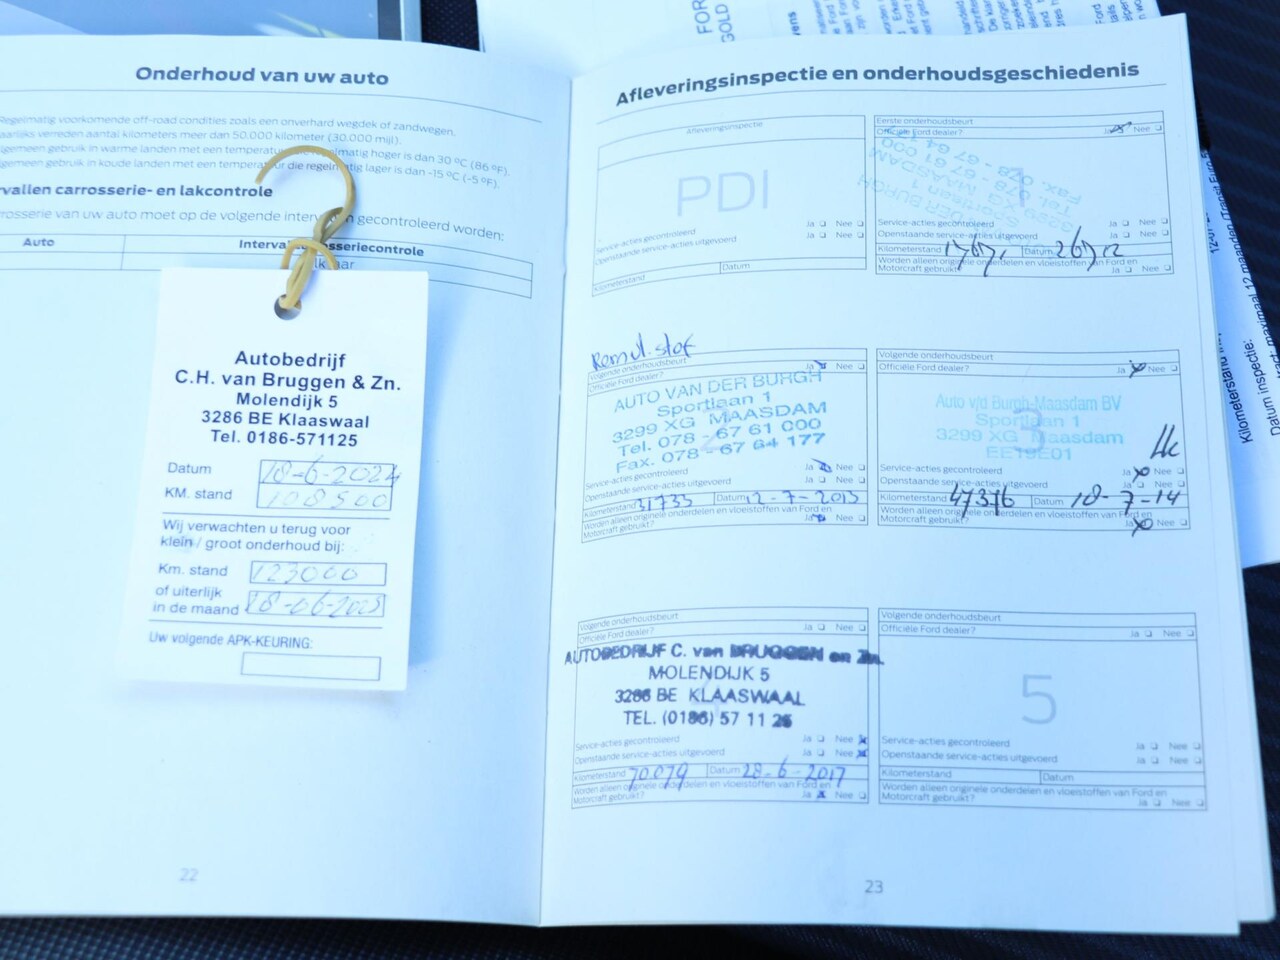 Onderhoud van uw auto
Regelmatig voorkomende off-road condities zoals een onverhard wegdek of zandwegen.
aarlijks verreden aantal kilometers meer dan 50.000 kilometer (30.000 mijl).
gemeen gebruik in warme landen met een temperatuur die regelmatig hoger is dan 30 ºC (86 ºF).
gemeen gebruik in koude landen met een temperatuur die regelmatig lager is dan -15 ºC (-5 ºF).
rvallen carrosserie- en lakcontrole
rosserie van uw auto moet op de volgende interv n gecontroleerd worden:
Auto
Interva osseriecontrole
lk aar
Autobedrijf
C.H. van Bruggen & Zn.
Molendijk 5
3286 BE Klaaswaal
Tel. 0186-571125
Datum 18-6-2024
KM. stand 108500
Wij verwachten u terug voor
klein / groot onderhoud bij:
Km. stand 123000
of uiterlijk
in de maand 18-06-2025
Uw volgende APK-KEURING:
22
Afleveringsinspectie en onderhoudsgeschiedenis
Afleveringsinspectie
PDI
Service-acties gecontroleerd Ja Nee
Openstaande service-acties uitgevoerd Ja Nee
Kilometerstand Datum
Eerste onderhoudsbeurt
Officiële Ford dealer? Ja Nee
Sportlaan 1
3299 XG MAASDAM
Tel. 078 - 67 61 000
Service-acties gecontroleerd Ja Nee
Openstaande service-acties uitgevoerd Ja Nee
Kilometerstand Datum
Worden alleen originele onderdelen en vloeistoffen van Ford en
Motorcraft gebruikt? Ja Nee
Volgende onderhoudsbeurt
Officiële Ford dealer? Ja Nee
AUTO VAN DER BURGH
Sportlaan 1
3299 XG MAASDAM
Tel. 078 - 67 61 000
Fax. 078 - 67 64 177
Service-acties gecontroleerd Ja Nee
Openstaande service-acties uitgevoerd
Kilometerstand 31733 Datum 12-7-2013
Worden alleen originele onderdelen en vloeistoffen van Ford en
Motorcraft gebruikt? Ja Nee
Volgende onderhoudsbeurt
Officiële Ford dealer? Ja Nee
3
Auto v/d Burgh-Maasdam BV
Sportlaan 1
3299 XG Maasdam
EE19E01
Service-acties gecontroleerd Ja Nee
Openstaande service-acties uitgevoerd Ja Nee
Kilometerstand 47376 Datum 18-7-14
Worden alleen originele onderdelen en vloeistoffen van Ford en
Motorcraft gebruikt? Ja Nee
Volgende onderhoudsbeurt
Officiële Ford dealer? Ja Nee
AUTOBEDRIJF C. van BRUGGEN en Zn.
MOLENDIJK 5
3286 BE KLAASWAAL
TEL. (0186) 57 11 25
Service-acties gecontroleerd Ja Nee
Openstaande service-acties uitgevoerd Ja Nee
Kilometerstand 70079 Datum 28-6-2017
Worden alleen originele onderdelen en vloeistoffen van Ford en
Motorcraft gebruikt? Ja Nee
Volgende onderhoudsbeurt
Officiële Ford dealer? Ja Nee
5
Service-acties gecontroleerd Ja Nee
Openstaande service-acties uitgevoerd Ja Nee
Kilometerstand Datum
Worden alleen originele onderdelen en vloeistoffen van Ford en
Motorcraft gebruikt? Ja Nee
23
FOR
GOLD
Kilometerstand
Datum inspectie:
maximaal 12 maanden (Transit Euro